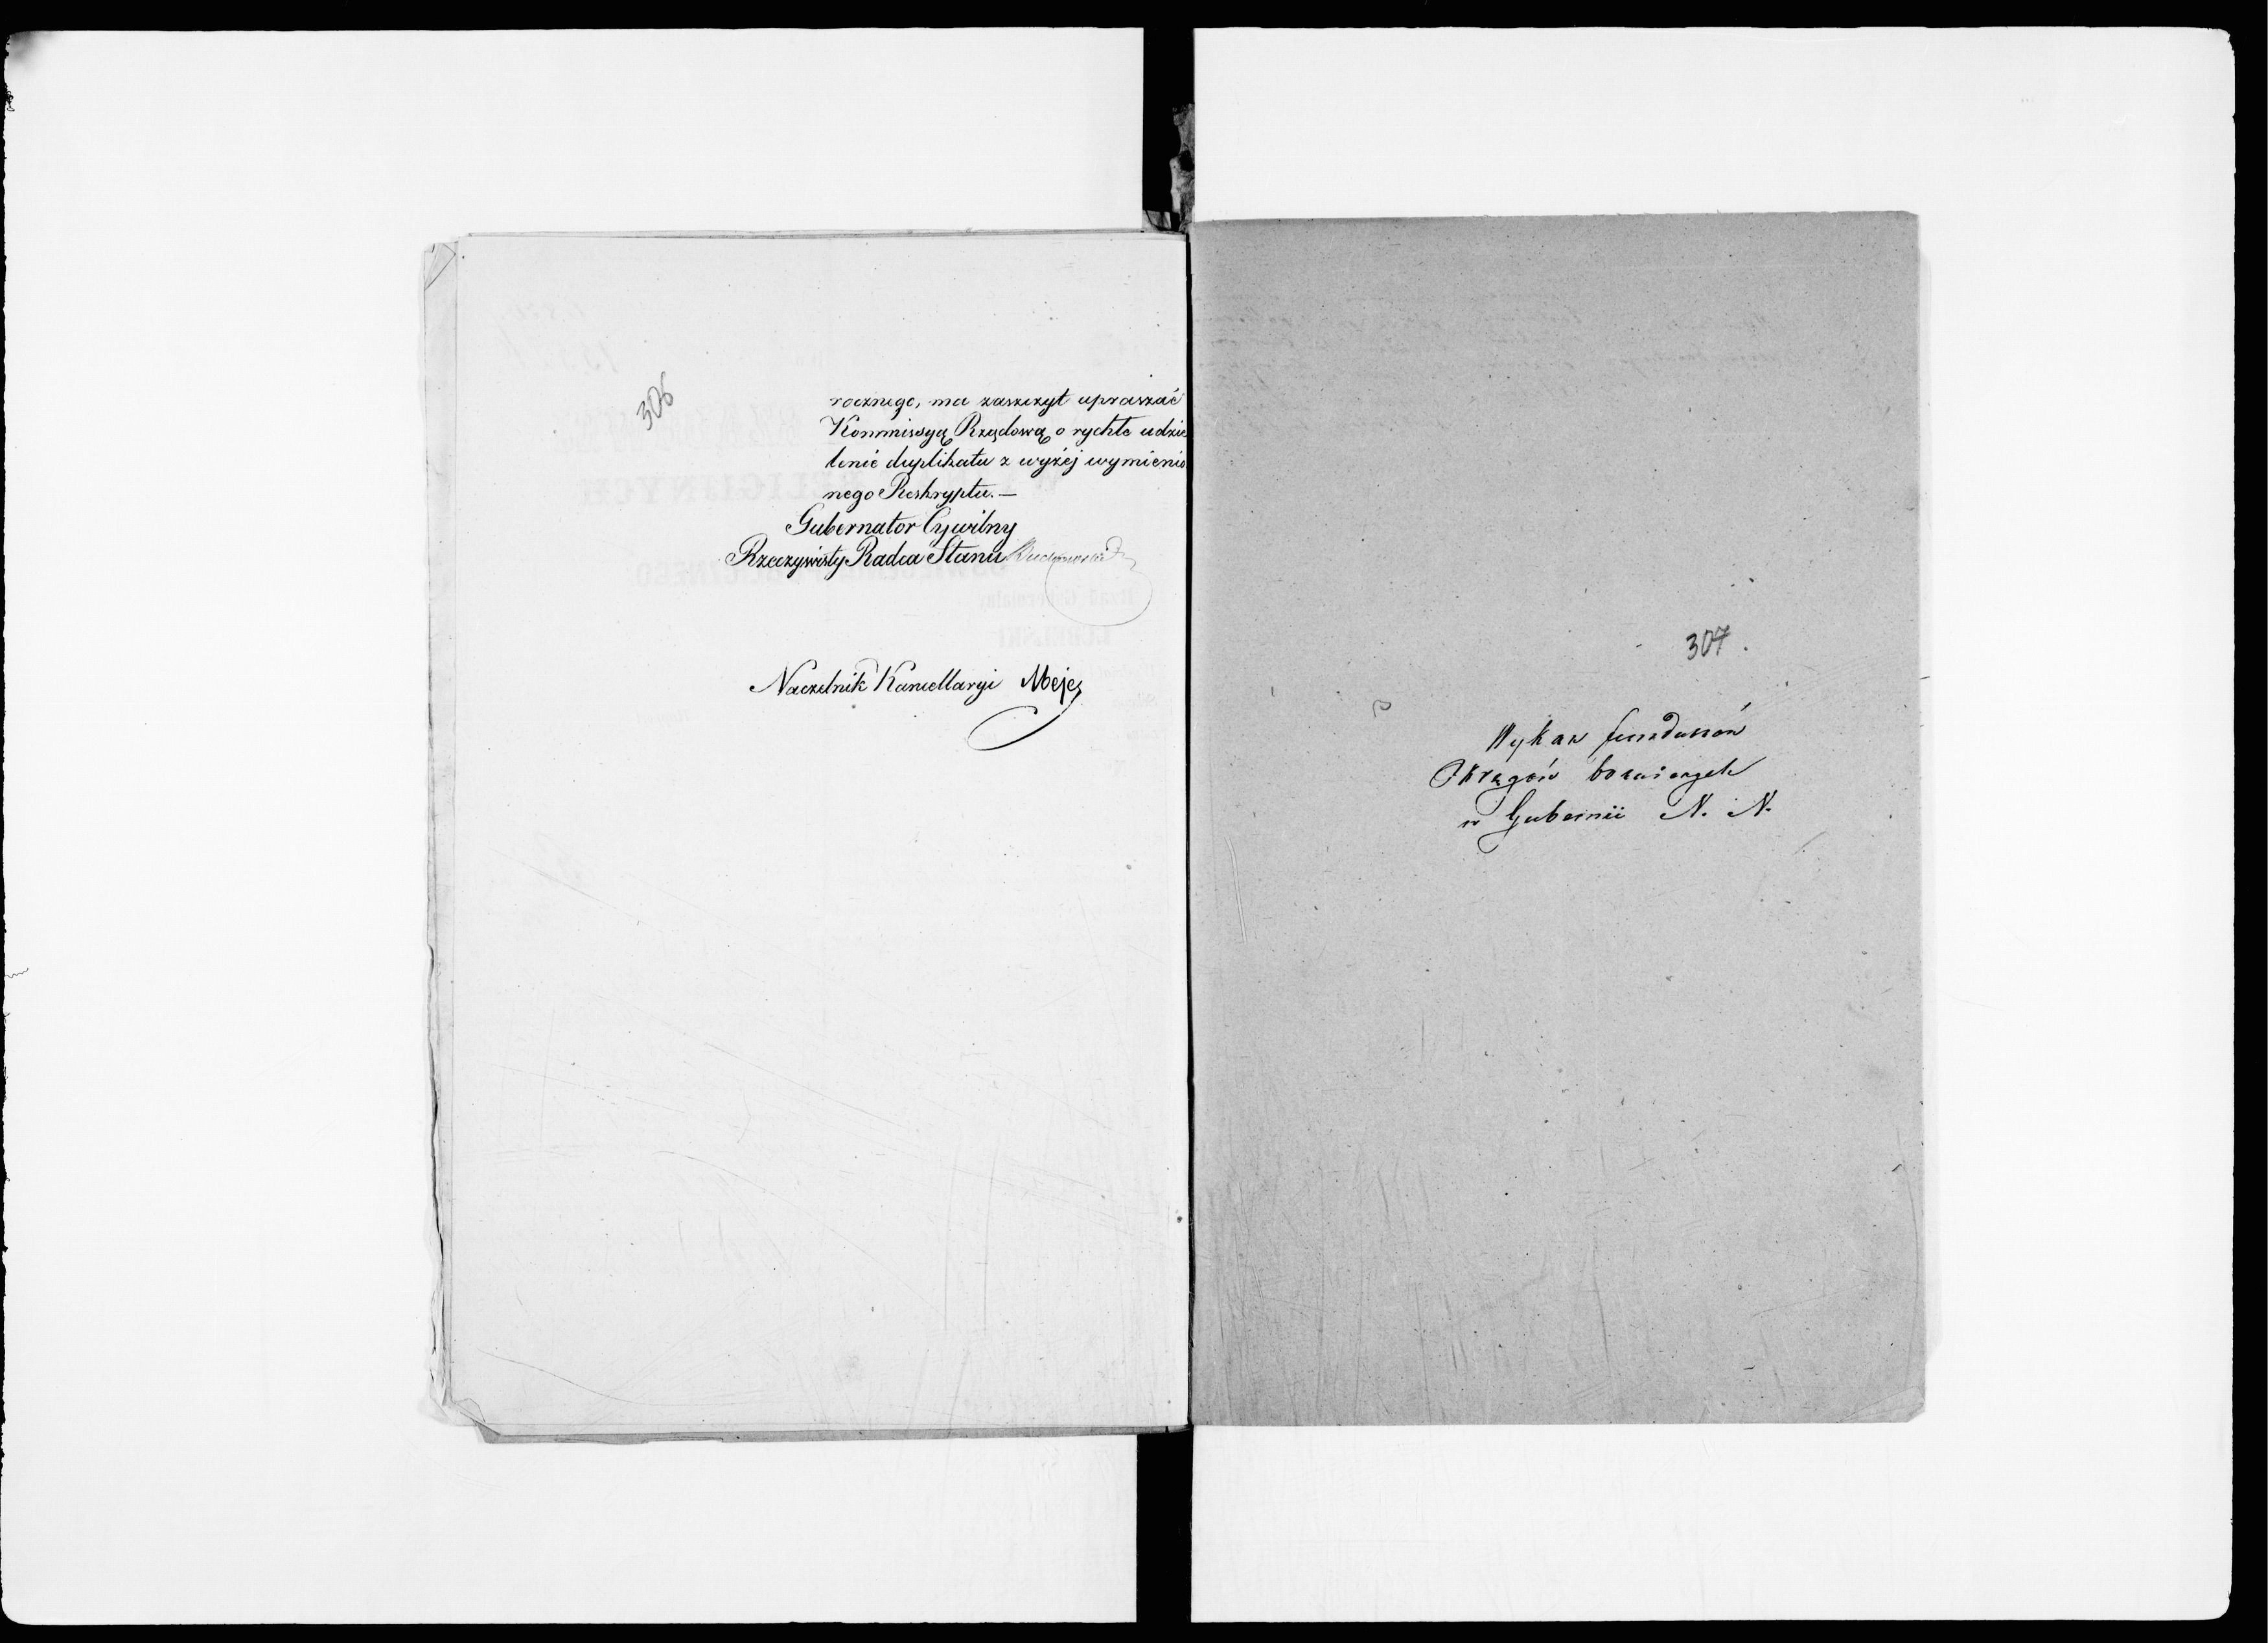 306
rocznego, ma zaszczyt upraszać
Kommissyą Rządową o rychłe udzie
lenie duplikatu z wyżej wymienio
nego Reskryptu. —
Gubernator Cywilny
Rzeczywisty Radca Stanu
Naczelnik Kancellaryi
307.
Wykaz funduszów
Okręgów bożniczych
w Gubernii N. N.